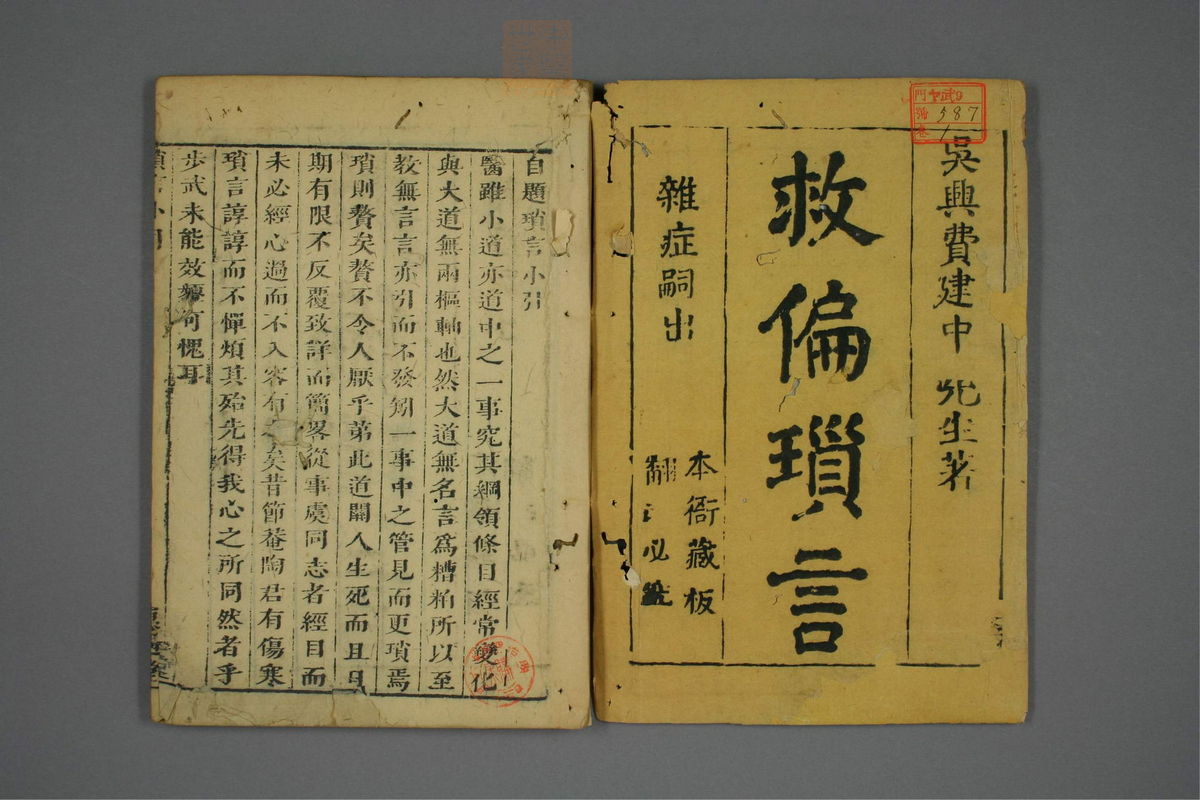 吳興費建中先生著
救偏瑣言
雜症嗣出
本衙藏板
翻必究
門
號 587
卷 1
自題瑣言小引
醫雖小道亦道中之一事究其綱領條目經常變化
與大道無兩樞軸也然大道無名言爲糟粕所以至
敎無言言亦引而不發矧一事中之管見而更瑣焉
瑣則贅矣贅不令人厭乎第此道關人生死而且日
期有限不反覆致詳而簡畧從事虞同志者經目而
未必經心過而不入容有矣昔節菴陶君有傷寒
瑣言諄諄而不憚煩其殆先得我心之所同然者乎
步武未能效顰何愧耳